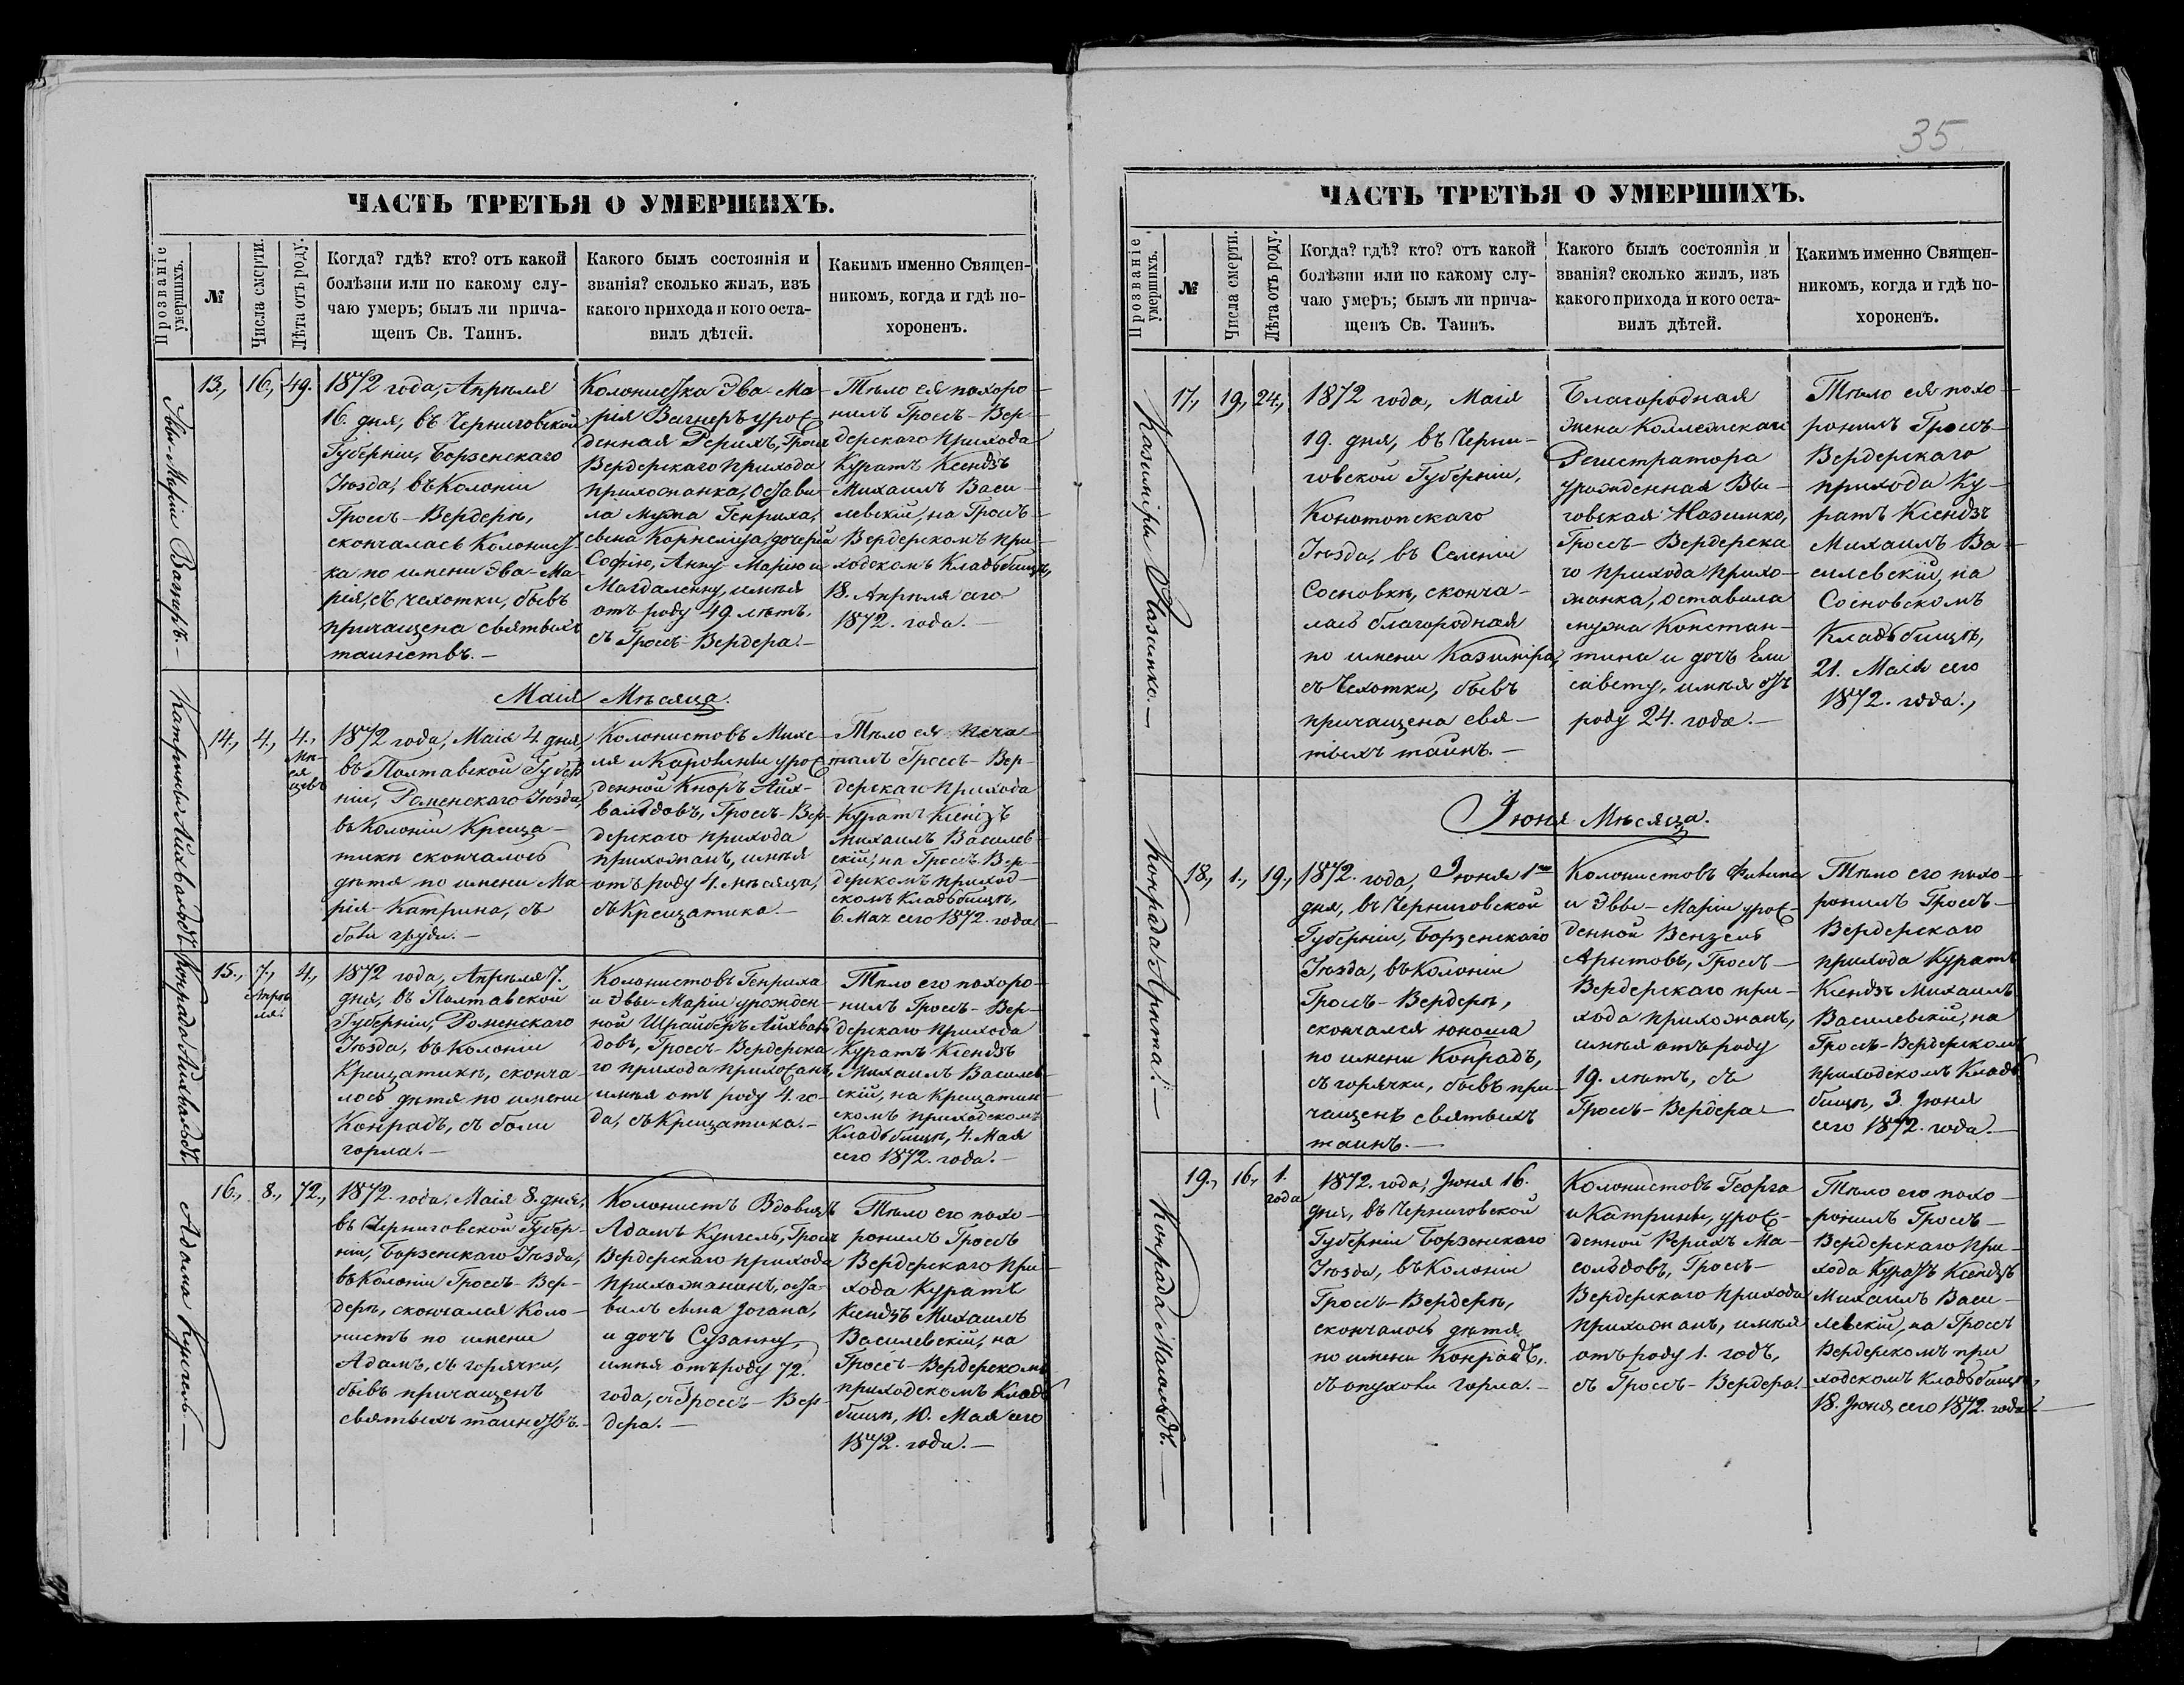 ЧАСТЬ ТРЕТЬЯ О УМЕРШИХЪ.
Прозваніе умершихъ.
№
Числа смерти.
Лѣта отъ роду.
Когда? гдѣ? кто? отъ какой
болѣзни или по какому слу-
чаю умеръ; былъ ли прича-
щенъ Св. Таинъ.
Какого былъ состоянія и
званія? сколько жилъ, изъ
какого прихода и кого оста-
вилъ дѣтей.
Какимъ именно Священ-
никомъ, когда и гдѣ по-
хороненъ.
Эвы-Маріи Вагнеръ.—
13., 16., 49.
1872 года, Апрѣля
16. дня, въ Черниговской
Губерніи, Борзенскаго
Уѣзда, въ Колоніи
Гроссъ-Вердерѣ,
скончалась Колонист-
ка по имени Эва-Ма-
рія, съ чехотки, бывъ
причащена святыхъ
таинствъ.—
Колонистка Эва-Ма-
рія Вагнеръ урож-
денная Рерихъ, Гроссъ
Вердерскаго прихода
прихожанка, остави-
ла мужа Генриха,
сына Корнелиуса, дочерей
Софію, Анну-Марію и
Магдаленну, имѣя
отъ роду 49 лѣтъ,
съ Гроссъ-Вердера.—
Тѣло ея похоро-
нилъ Гроссъ-Вер-
дерскаго прихода
Куратъ Ксендзъ
Михаилъ Васи-
левскій, на Гроссъ-
Вердерскомъ при-
ходскомъ Кладьбищѣ,
18. Апрѣля сего
1872. года.—
Маія Мѣсяца.
Катрины Айхвальдъ
14., 4., 4., Мѣ-
ся
цевъ
1872 года, Маія 4. дня,
въ Полтавской Губер
ніи, Роменскаго Уѣзда,
въ Колоніи Креща-
тикѣ скончалось
дѣтя по имени Ма-
рія-Катрина, съ
боли груди.—
Колонистовъ Михе-
ля и Каролины урож-
денной Кноръ Айх-
вальдовъ, Гроссъ-Вер-
дерскаго прихода
прихожанъ, имѣя
отъ роду 4. мѣсяца,
съ Крещатика.—
Тѣло ея
Гроссъ-Вер-
дерскаго прихода
Куратъ Ксендзъ
Михаилъ Василев-
скій, на Гроссъ-Вер-
дерскомъ приход-
скомъ Кладьбищѣ,
6. Мая сего 1872. года
Конрада Айхвальдъ.
15., 7., Апрѣ
ля 4.,
1872 года, Апрѣля 7.
дня, въ Полтавской
Губерніи, Роменскаго
Уѣзда, въ Колоніи
Крещатикѣ, сконча-
лось дѣтя по имени
Конрадъ, съ боли
горла.—
Колонистовъ Генриха
и Эвы-Маріи урожден-
ной Шрайберъ Айхваль
довъ, Гроссъ-Вердерска
го прихода прихожанъ,
имѣя отъ роду 4. го-
да, съ Крещатика.—
Тѣло его похоро-
нилъ Гроссъ-Вер-
дерскаго прихода
Куратъ Ксендзъ
Михаилъ Василев
скій, на Крещатин-
скомъ приходскомъ
Кладьбищѣ, 4. Мая
сего 1872. года.—
Адама Кунгель.—
16., 8., 72.,
1872. года, Маія 8. дня,
въ Черниговской Губер-
ніи, Борзенскаго Уѣзда,
въ Колоніи Гроссъ-Вер-
дерѣ, скончался Коло-
нистъ по имени
Адамъ, съ горячки,
бывъ причащенъ
святыхъ таинствъ.—
Колонистъ Вдовецъ
Адамъ Кунгель, Гроссъ
Вердерскаго прихода
прихожанинъ, оста-
вилъ сына Іогана,
и дочъ Сузанну,
имѣя отъ роду 72.
года, съ Гроссъ-Вер-
дера.—
Тѣло его похо-
ронилъ Гроссъ
Вердерскаго при-
хода Куратъ
Ксендзъ Михаилъ
Василевскій, на
Гроссъ-Вердерскомъ
приходскомъ Кладь
бищѣ, 10. Мая сего
1872. года.—
35.
ЧАСТЬ ТРЕТЬЯ О УМЕРШИХЪ.
Прозваніе умершихъ.
№
Числа смерти.
Лѣта отъ роду.
Когда? гдѣ? кто? отъ какой
болѣзни или по какому слу-
чаю умеръ; былъ ли прича-
щенъ Св. Таинъ.
Какого былъ состоянія и
званія? сколько жилъ, изъ
какого прихода и кого оста-
вилъ дѣтей.
Какимъ именно Священ-
никомъ, когда и гдѣ по-
хороненъ.
Казиміры Назимко.—
17., 19., 24.,
1872 года, Маія
19. дня, въ Черни-
говской Губерніи,
Конотопскаго
Уѣзда, въ Селеніи
Сосновкѣ, сконча-
лась благородная
по имени Казиміра,
съ Чехотки, бывъ
причащена свя-
тыхъ таинъ.—
Благородная
жена Коллежскаго
Регистратора
урожденная Вы-
говская Назимко,
Гроссъ-Вердерска
го прихода прихо-
жанка, оставила
мужа Констан-
тина и дочъ Ели
савету, имѣя отъ
роду 24. года.—
Тѣло ея похо-
ронилъ Гроссъ-
Вердерскаго
прихода Ку-
ратъ Ксендзъ
Михаилъ Ва-
силевскій, на
Сосновскомъ
Кладьбищѣ,
21. Маія сего
1872. года.,
Іюня Мѣсяца.
Конрада Арнта.—
18., 1., 19.,
1872. года, Іюня 1го
дня, въ Черниговской
Губерніи, Борзенскаго
Уѣзда, въ Колоніи
Гроссъ-Вердерѣ,
скончался юноша
по имени Конрадъ,
съ горячки, бывъ при-
чащенъ святыхъ
таинъ.—
Колонистовъ Филипа
и Эвы-Маріи урож-
денной Вензель
Арнтовъ, Гроссъ-
Вердерскаго при-
хода прихожанъ,
имѣя отъ роду
19. лѣтъ, съ
Гроссъ-Вердера—
Тѣло его похо-
ронилъ Гроссъ-
Вердерскаго
прихода Куратъ
Ксендзъ Михаилъ
Василевскій, на
Гроссъ-Вердерскомъ
приходскомъ Кладь
бищѣ, 3. Іюня
сего 1872. года.—
Конрада Масольдъ.—
19., 16., 1.
года
1872. года, Іюня 16.
дня, въ Черниговской
Губерніи Борзенскаго
Уѣзда, въ Колоніи
Гроссъ-Вердерѣ,
скончалось дѣтя
по имени Конрадъ,
съ опухови горла.—
Колонистовъ Георга
и Катрины, урож-
денной Рерихъ Ма-
сольдовъ, Гроссъ-
Вердерскаго прихода
прихожанъ, имѣя
отъ роду 1. годъ,
съ Гроссъ-Вердера.
Тѣло его похо-
ронилъ Гроссъ-
Вердерскаго при-
хода Куратъ Ксендзъ
Михаилъ Васи-
левскій, на Гроссъ
Вердерскомъ при
ходскомъ Кладьбищѣ,
18. Іюня сего 1872. года.—